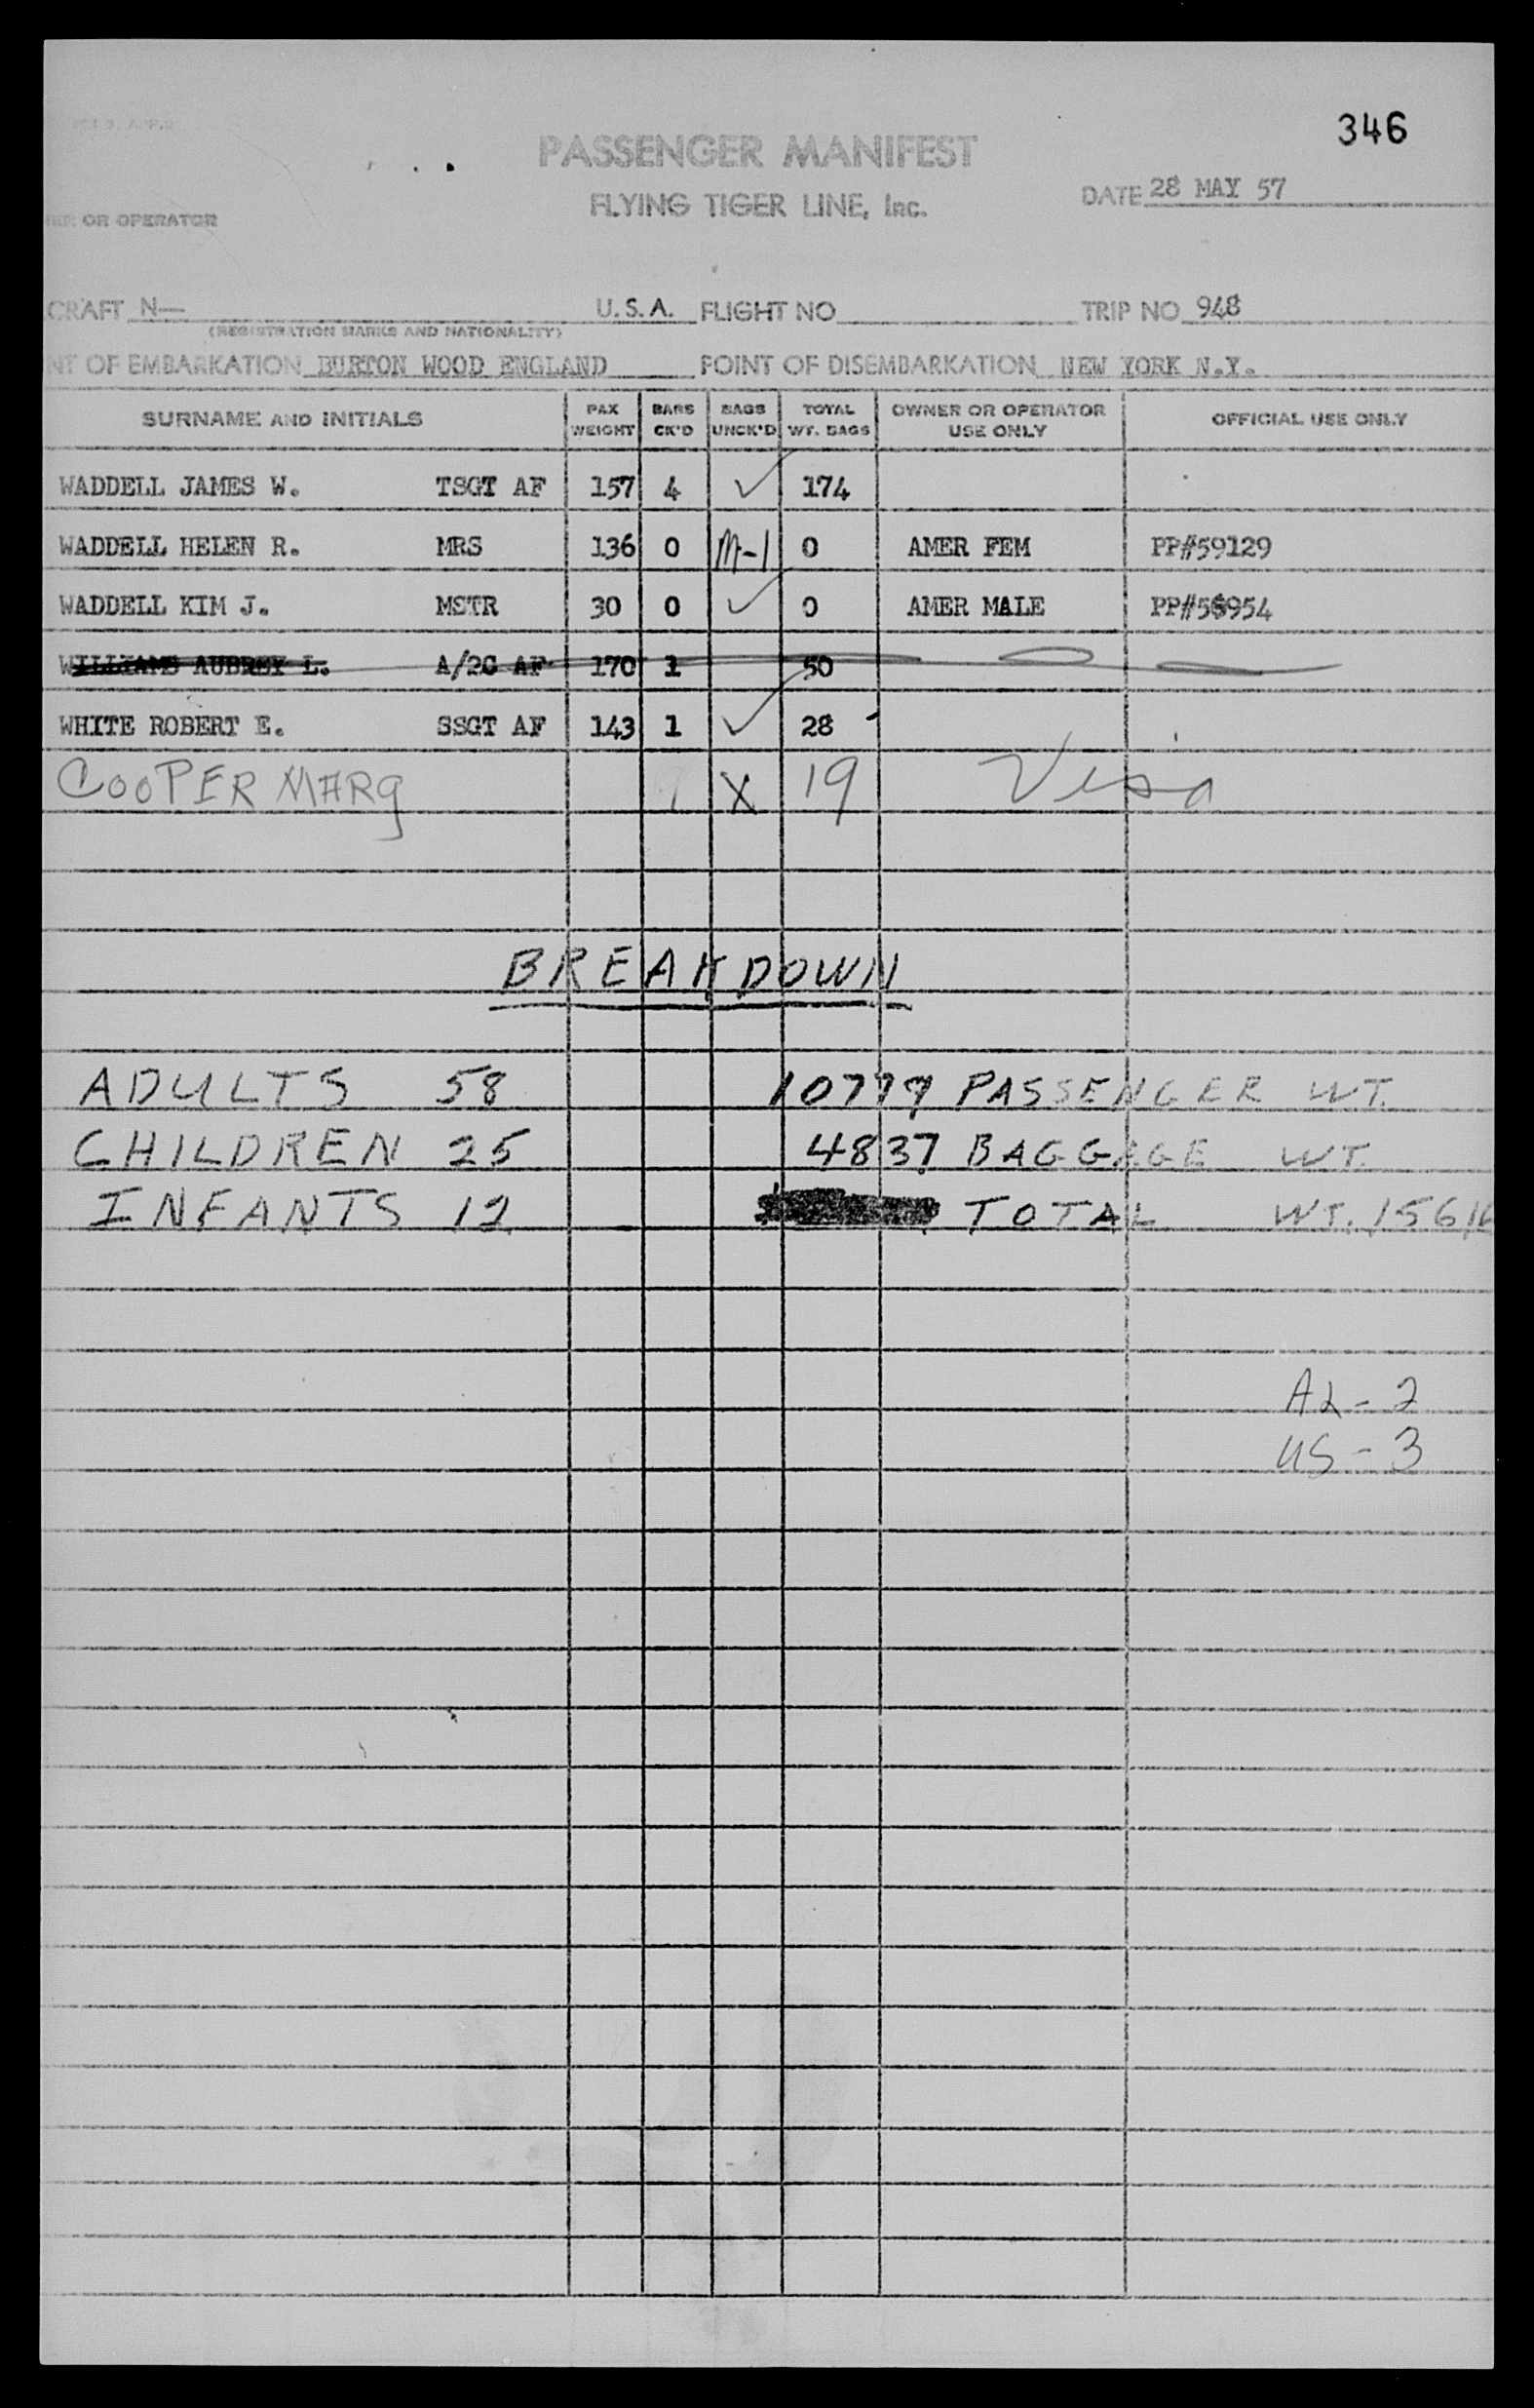 346
PASSENGER MANIFEST
FLYING TIGER LINE, Inc.
DATE 28 MAY 57
OR OPERATOR
CRAFT N— U.S.A. FLIGHT NO TRIP NO 948
(REGISTRATION MARKS AND NATIONALITY)
NT OF EMBARKATION BURTON WOOD ENGLAND POINT OF DISEMBARKATION NEW YORK N.Y.
SURNAME AND INITIALS PAX WEIGHT BAGS CK'D BAGS UNCK'D TOTAL WT. BAGS OWNER OR OPERATOR USE ONLY OFFICIAL USE ONLY
WADDELL JAMES W. TSGT AF 157 4 ✓ 174
WADDELL HELEN R. MRS 136 0 M-1 0 AMER FEM PP#59129
WADDELL KIM J. MSTR 30 0 ✓ 0 AMER MALE PP#58954
WILLIAMS AUBREY L. A/2C AF 170 1 50
WHITE ROBERT E. SSGT AF 143 1 ✓ 28
COOPER MARG 1 X 19 Visa
BREAKDOWN
ADULTS 58 10777 PASSENGER WT.
CHILDREN 25 4837 BAGGAGE WT.
INFANTS 12 TOTAL WT.
- 2
US - 3